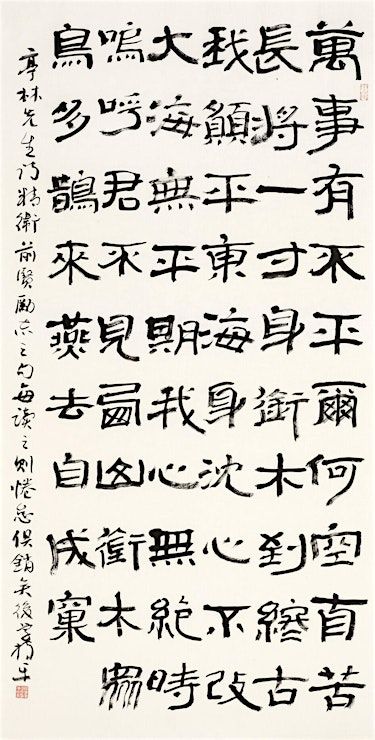 萬事有不平爾何空自苦
長將一寸身銜木到終古
我願平東海身沈心不改
大海無平期我心無絕時
嗚呼君不見西山銜木眾
鳥多鵲來燕去自成窠
亭林先生诗精衛前賢勵志之句每读之则惓怠俱銷矣後学